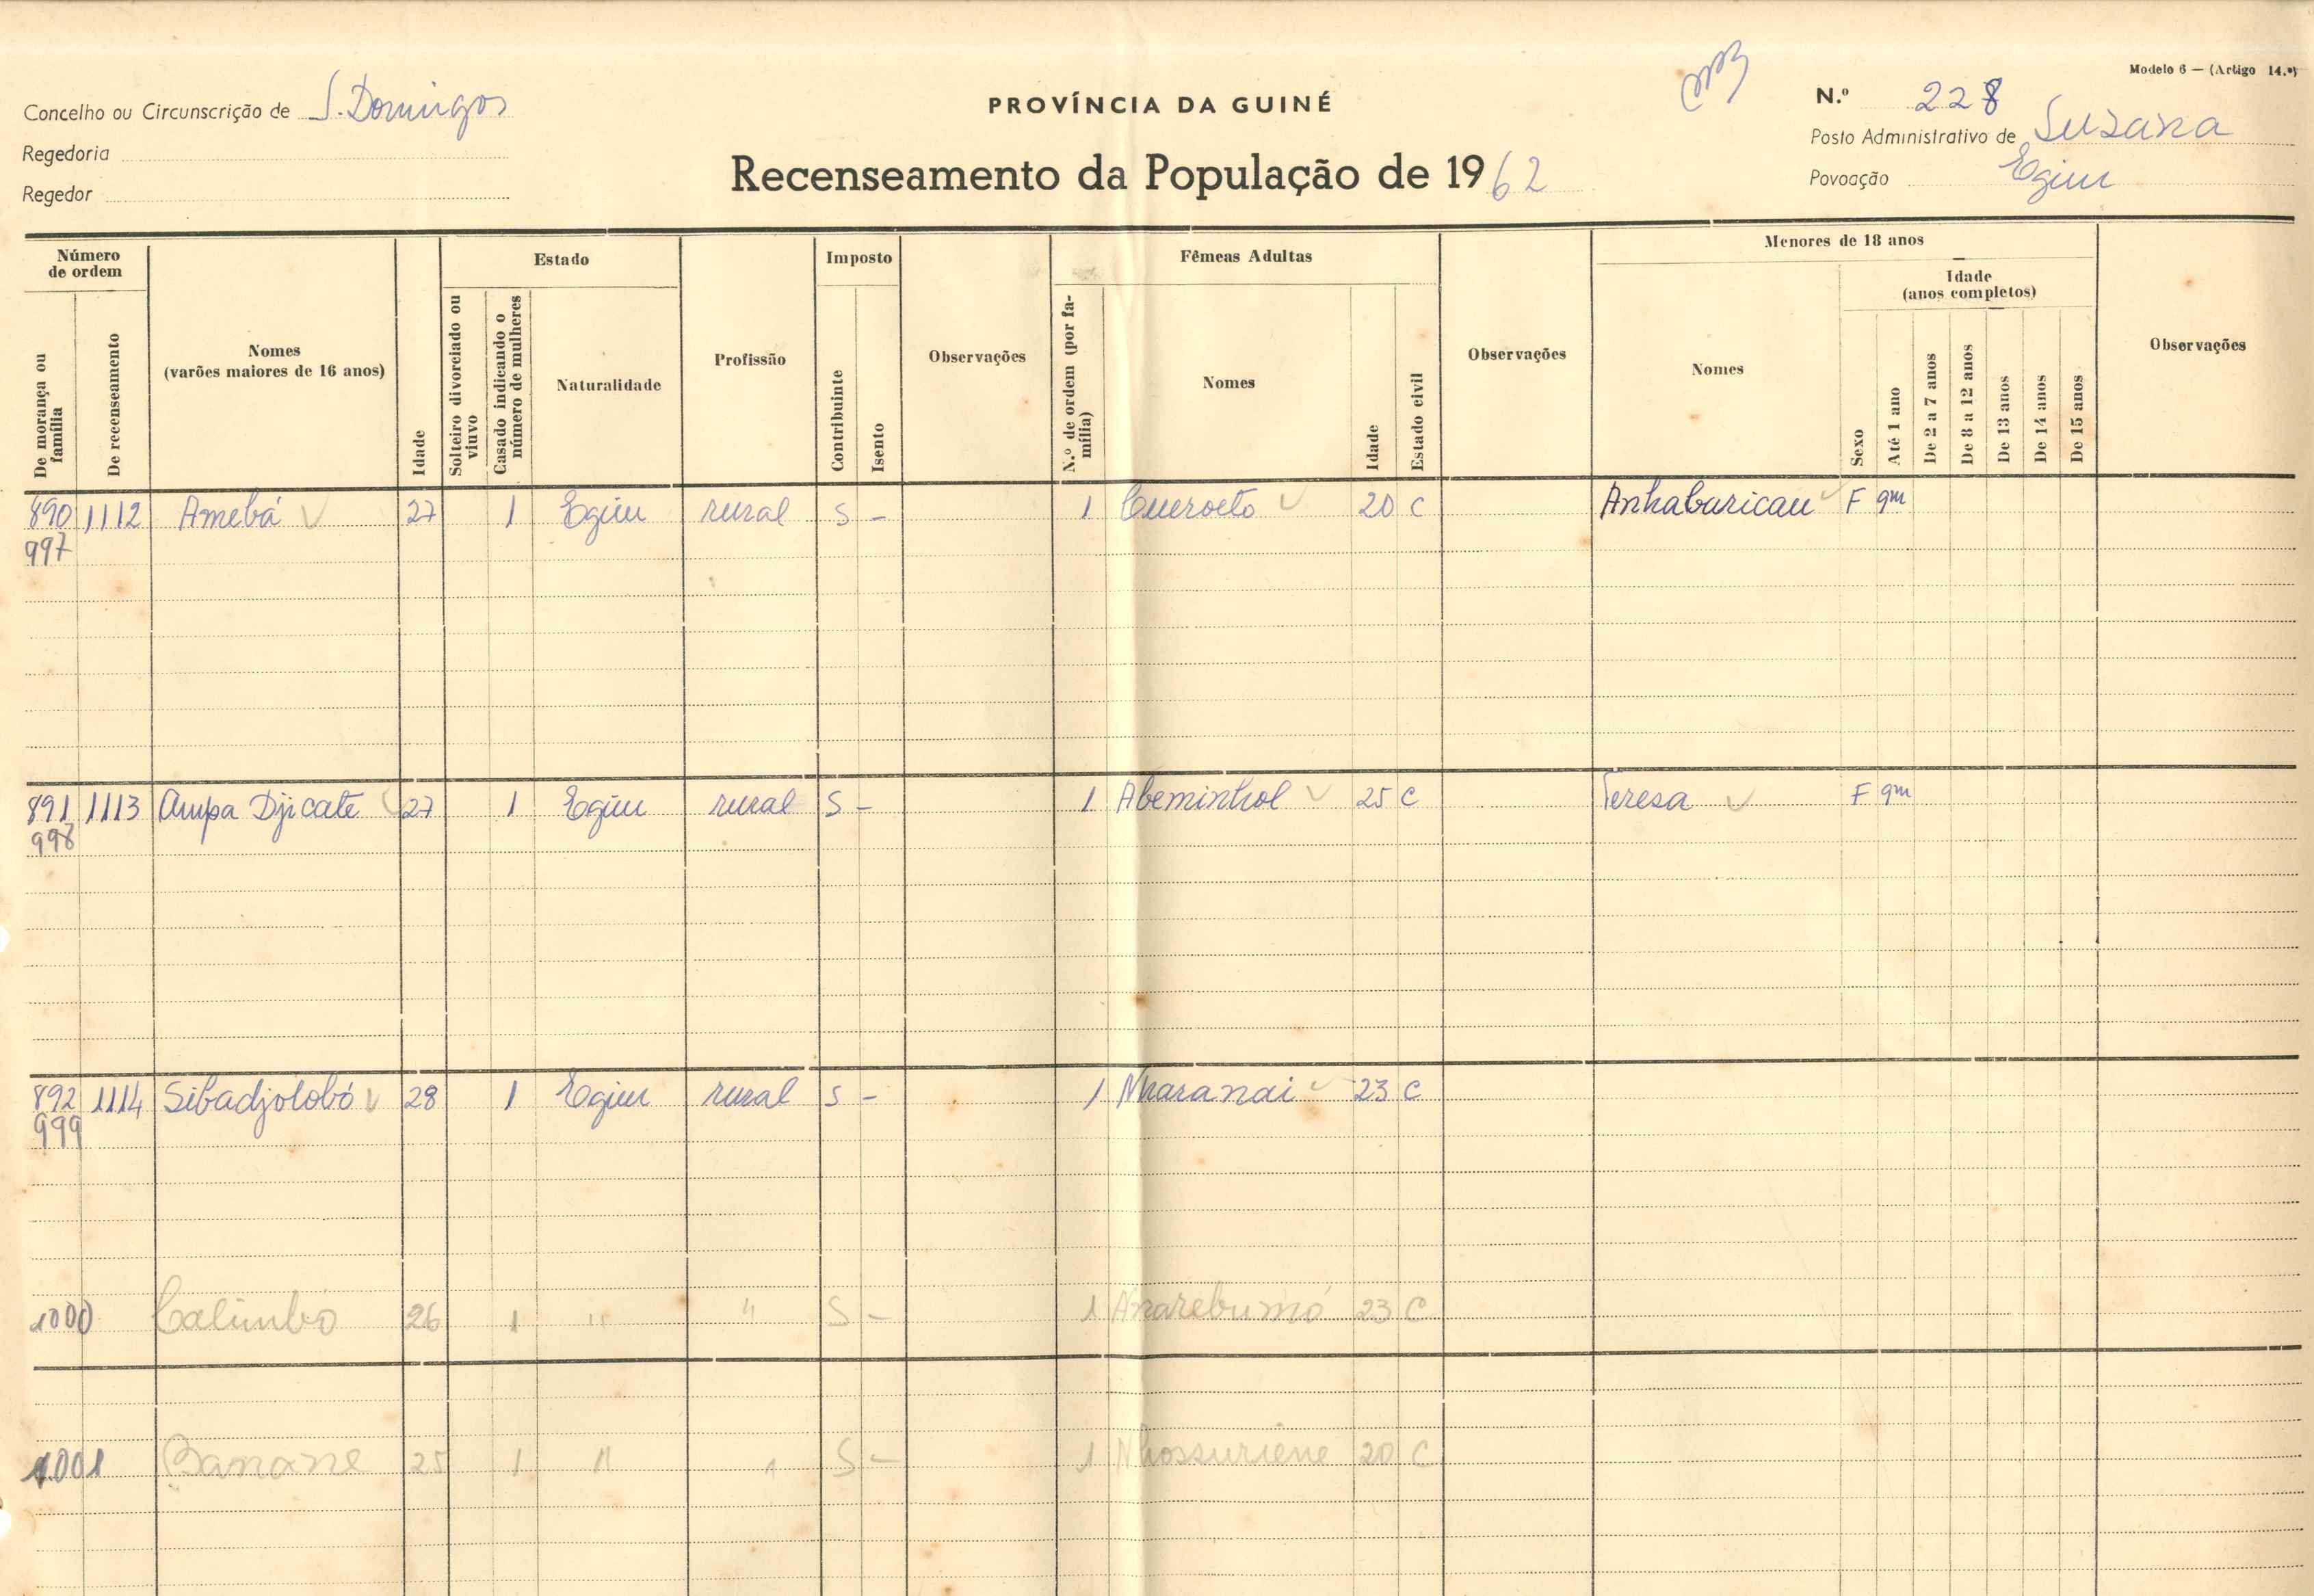 Modelo 6 — (Artigo 14.º)
Concelho ou Circunscrição de S. Domingos
PROVÍNCIA DA GUINÉ
N.º 228
Regedoria
Posto Administrativo de Suzana
Regedor
Recenseamento da População de 1962
Povoação Egim
Número de ordem
De morança ou família
De recenseamento
Nomes
(varões maiores de 16 anos)
Idade
Estado
Solteiro divorciado ou viuvo
Casado indicando o número de mulheres
Naturalidade
Profissão
Imposto
Contribuinte
Isento
Observações
Fêmeas Adultas
N.º de ordem (por família)
Nomes
Idade
Estado civil
Observações
Menores de 18 anos
Nomes
Idade
(anos completos)
Sexo
Até 1 ano
De 2 a 7 anos
De 8 a 12 anos
De 13 anos
De 14 anos
De 15 anos
Observações
890 1112 Amebá 27 1 Egim rural S - 1 Cueroeto 20 C Anhabaricau F 9m
997
891 1113 Ampa Djicate 27 1 Egim rural S - 1 Abeminhol 25 C Teresa F 9m
998
892 1114 Sibadjolobó 28 1 Egim rural S - 1 Nharanai 23 C
999
1000 Calimbó 26 1 " " S - 1 Anarebumó 23 C
1001 Banane 25 1 " " S - 1 Nhossuriene 20 C